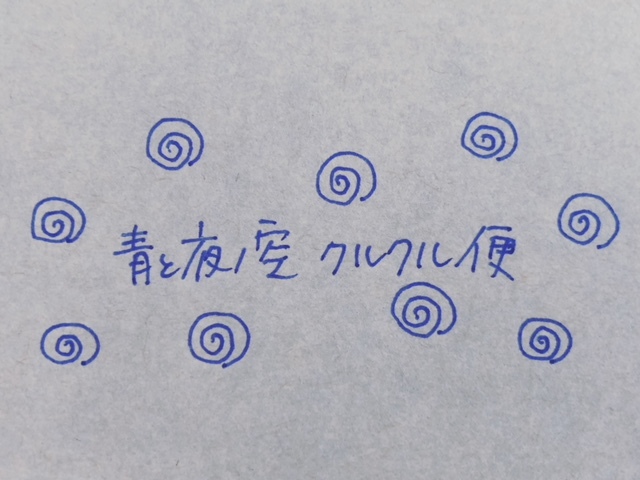 青と夜ノ空 クルクル便